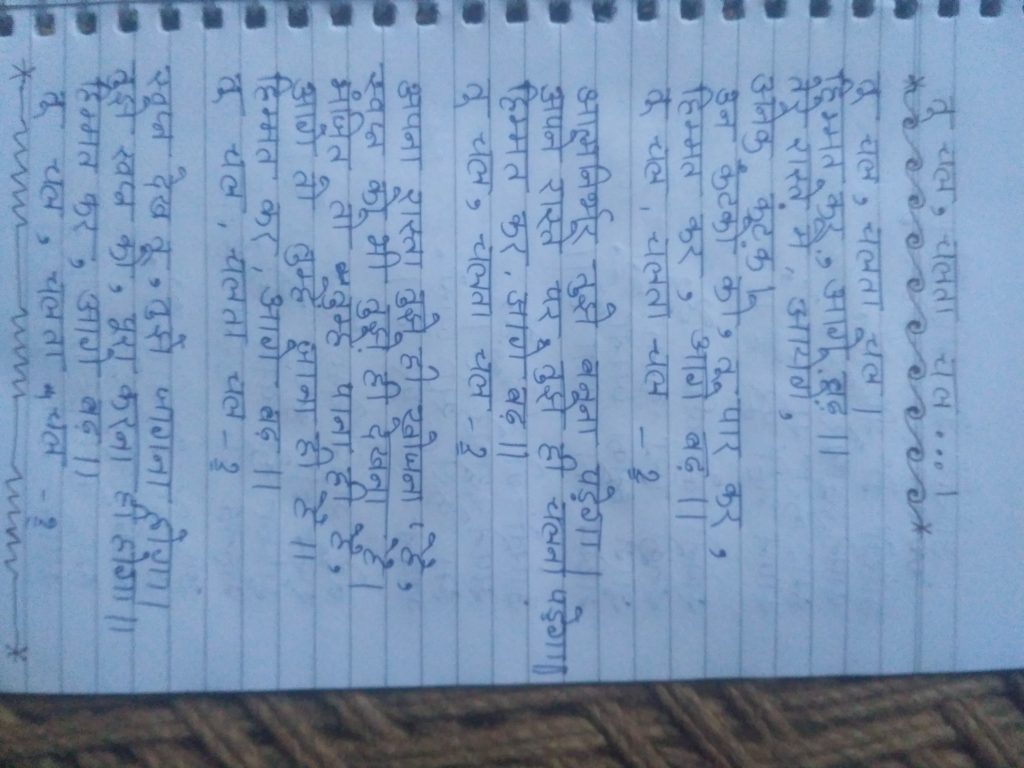 तू चल, चलता चल....।
तू चल, चलता चल।
हिम्मत कर, आगे बढ़॥
तेरे रास्ते में, आयेंगे,
अनेक कंटक।
उन कंटको को, तू पार कर,
हिम्मत कर, आगे बढ़॥
तू चल, चलता चल -२
आत्मनिर्भर तुझे बनना पड़ेगा।
अपने रास्ते पर तुझे ही चलना पड़ेगा॥
हिम्मत कर, आगे बढ़॥
तू चल, चलता चल -२
अपना रास्ता तुझे ही खोजना है,
स्वप्न को भी तुझे ही देखना है।
मंजिल तो तुम्हे पाना ही है,
आगे तो तुम्हे जाना ही है॥
हिम्मत कर, आगे बढ़॥
तू चल, चलता चल -२
स्वप्न देख तू, तुझे जागना होगा।
तुझे स्वप्न को, पूरा करना ही होगा॥
हिम्मत कर, आगे बढ़॥
तू चल, चलता चल -२